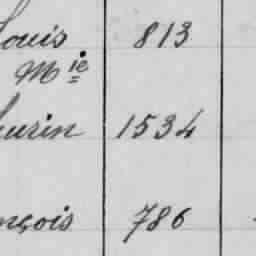 Louis 813
Mie
urin 1534
nçois 786